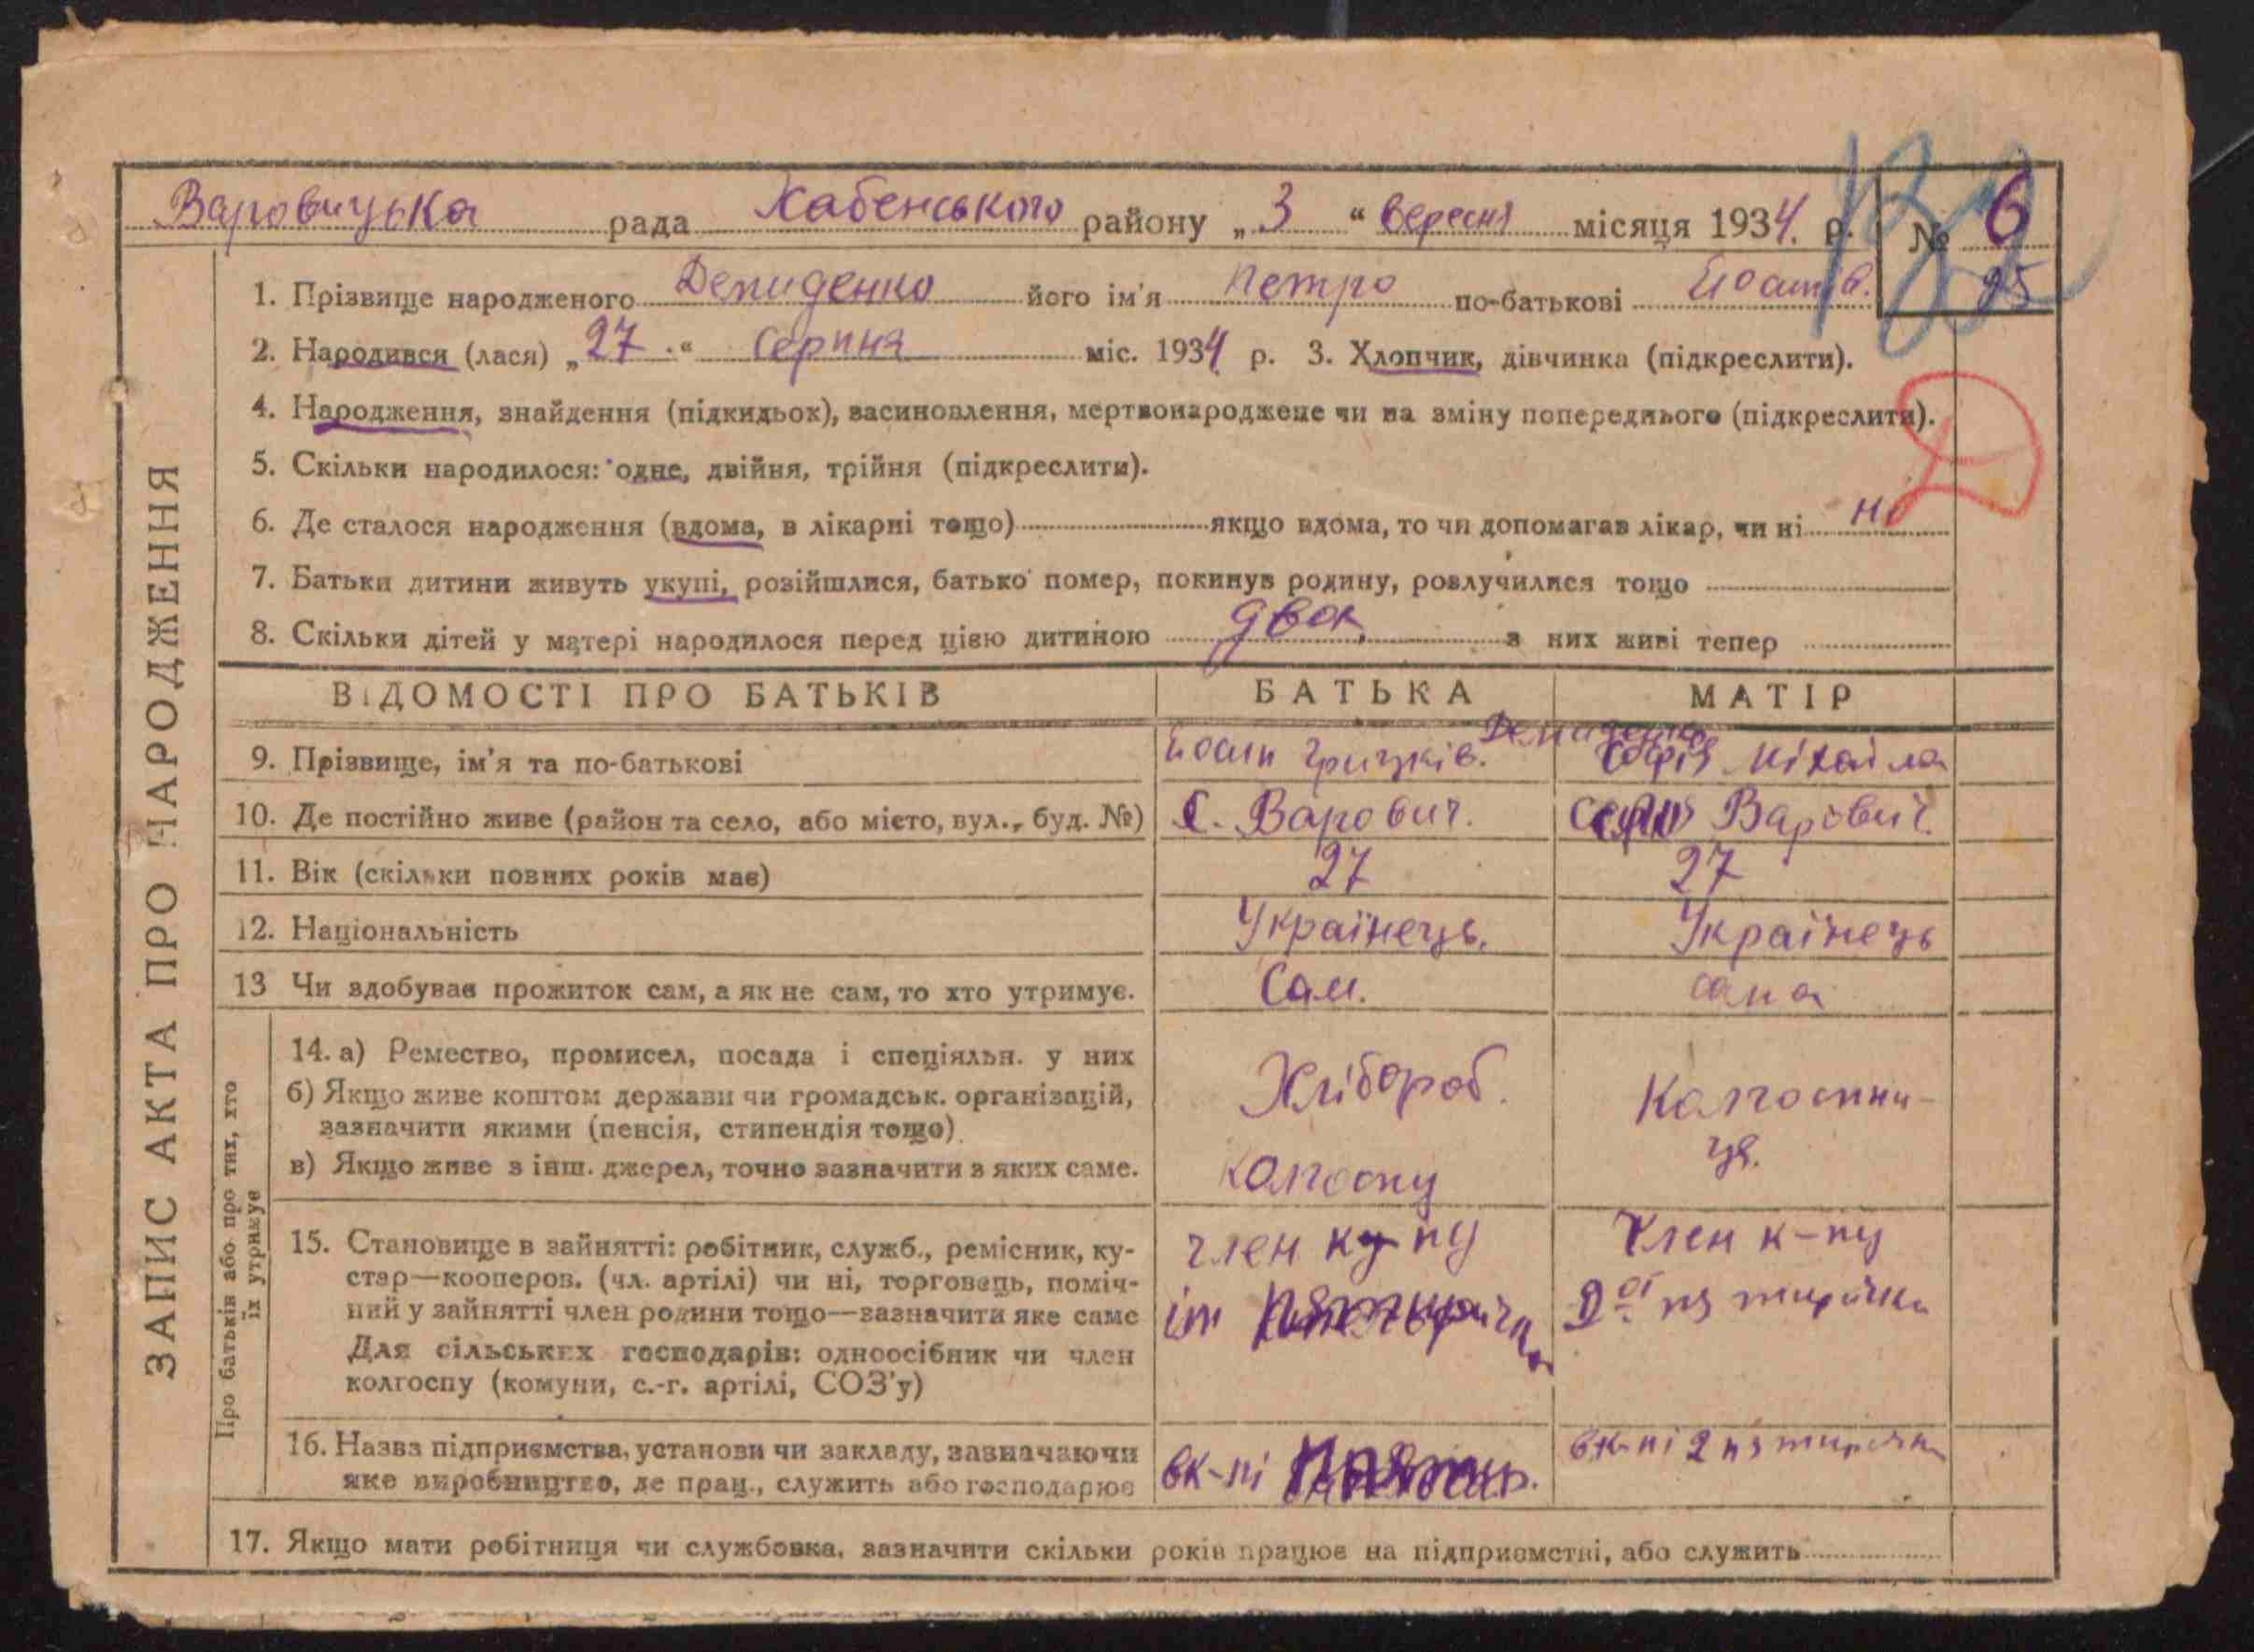 Варовицька рада Хабенського району „3“ Вересня місяця 1934. р. № 6
1. Прізвище народженого Демиденко його ім'я Петро по-батькові Йосипів. 25
2. Народився (лася) „27“ Серпня міс. 1934 р. 3. Хлопчик, дівчинка (підкреслити).
4. Народження, знайдення (підкидьох), васиновлення, мертвонароджене чи на зміну попереднього (підкреслити).
5. Скільки народилося: одне, двійня, трійня (підкреслити).
6. Де сталося народження (вдома, в лікарні тощо) якщо вдома, то чи допомагав лікар, чи ні ні
7. Батьки дитини живуть укупі, розійшлися, батько помер, покинув родину, розлучилися тощо
8. Скільки дітей у матері народилося перед цією дитиною двох з них живі тепер
ЗАПИС АКТА ПРО НАРОДЖЕННЯ
ВІДОМОСТІ ПРО БАТЬКІВ БАТЬКА МАТІР
Демиденко
9. Прізвище, ім'я та по-батькові Йосип Грицків. Софія Міхайла
10. Де постійно живе (район та село, або місто, вул., буд. №) С. Варович. село Варович.
11. Вік (скільки повних років має) 27 27
12. Національність Українець. Українець
13 Чи здобуває прожиток сам, а як не сам, то хто утримує. Сам. сама
Про батьків або про тих, хто
їх утримує
14. а) Ремество, промисел, посада і спеціяльн. у них
б) Якщо живе коштом держави чи громадськ. організацій,
зазначити якими (пенсія, стипендія тощо)
в) Якщо живе з інш. джерел, точно зазначити з яких саме.
Хлібороб.
колгоспу
Колгоспни-
ця.
15. Становище в зайнятті: робітник, служб., ремісник, ку-
стар—кооперов. (чл. артілі) чи ні, торговець, поміч-
ний у зайнятті член родини тощо—зазначити яке саме
Для сільських господарів: одноосібник чи член
колгоспу (комуни, с.-г. артілі, СОЗ'у)
член к-пу
ім
Член к-пу
2ої пятирічки
16. Назва підприємства, установи чи закладу, зазначаючи
яке виробництво, де прац., служить або господарює
вк-пі
вк-пі 2 пятирічки
17. Якщо мати робітниця чи службовка, зазначити скільки років працює на підприємстві, або служить